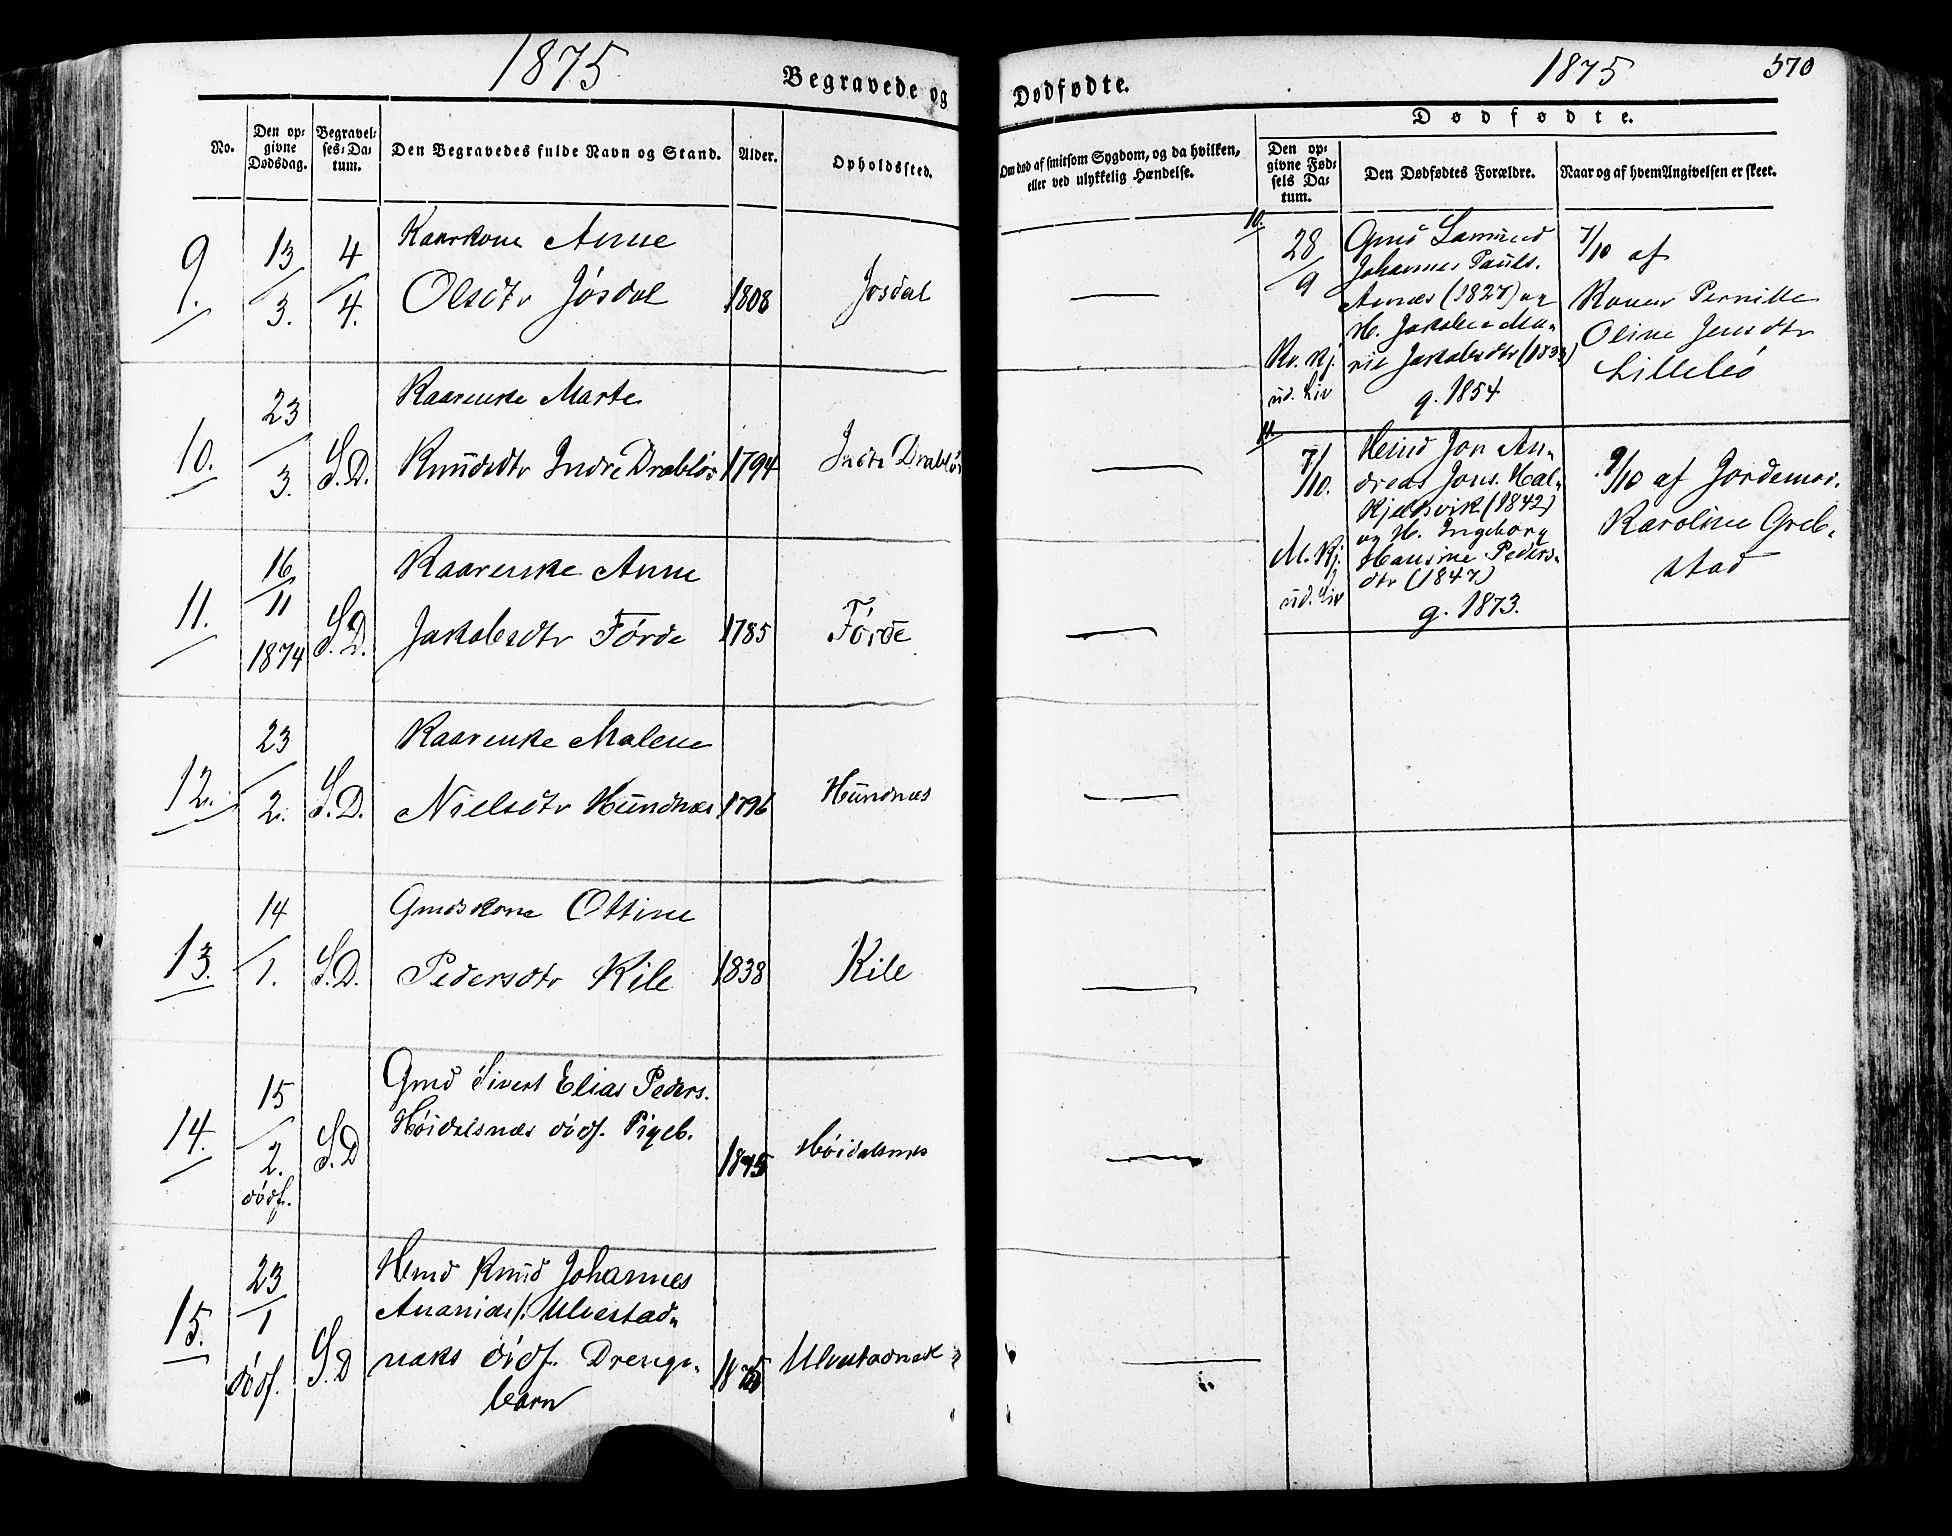 1875
Begravede og
No.
Den op-
givne
Dødsdag.
Begravel-
ses-Da-
tum.
Den Begravedes fulde Navn og Stand.
Alder.
Opholdssted.
9.
13/3.
4/4.
Kaarkone Anne
Olsdtr Jøsdal
1808
Jøsdal
10.
23/3.
S.D.
Kaarenke Marte
Knudsdtr Indre Drabløs
1794
Indre Drabløs
11.
16/11
1874
S.D.
Kaarenke Anne
Jakobsdtr Förde
1785
Förde
12.
23/2.
S.D.
Kaarenke Malene
Nielsdtr Hundnæs
1796
Hundnæs
13.
14/1.
S.D.
Gmdskone Ottine
Pedersdtr Kile
1838
Kile
14.
15/2.
dödf.
S.D
Gmd Sivert Elias Peders.
Höidalsnæs dödf. Pigeb.
1875
Höidalsnæs
15.
23/1
dödf.
S.D
Hmd Knud Johannes
Ananias/: Ulvestad-
naks dödf. Drenge-
barn
1875
Ulvestadnak
1875
570
Dødfødte.
Om død af smitsom Sygdom, og da hvilken,
eller ved ulykkelig Hændelse.
Dødfødte.
Den op-
givne Fød-
sels Da-
tum.
Den Dødfødtes Forældre.
Naar og af hvem Angivelsen er skeet.
10.
28/9
Kv. kj.
ud. Liv
Gmd Samund
Johannes Pauls.
Aanæs (1827) og
H. Jakobine Ma-
rie Jakobsdtr (1833)
g. 1854
7/10 af
Konen Pernille
Oline Jensdtr
Lillebö
11.
7/10.
M. kj.
ud. Liv
Hmd Jon An-
dreas Jons. Hal-
kjelsvik (1842)
og H. Ingeborg
Hansine Peders-
dtr (1847)
g. 1873.
9/10 af Jordemor.
Karoline Greb-
stad